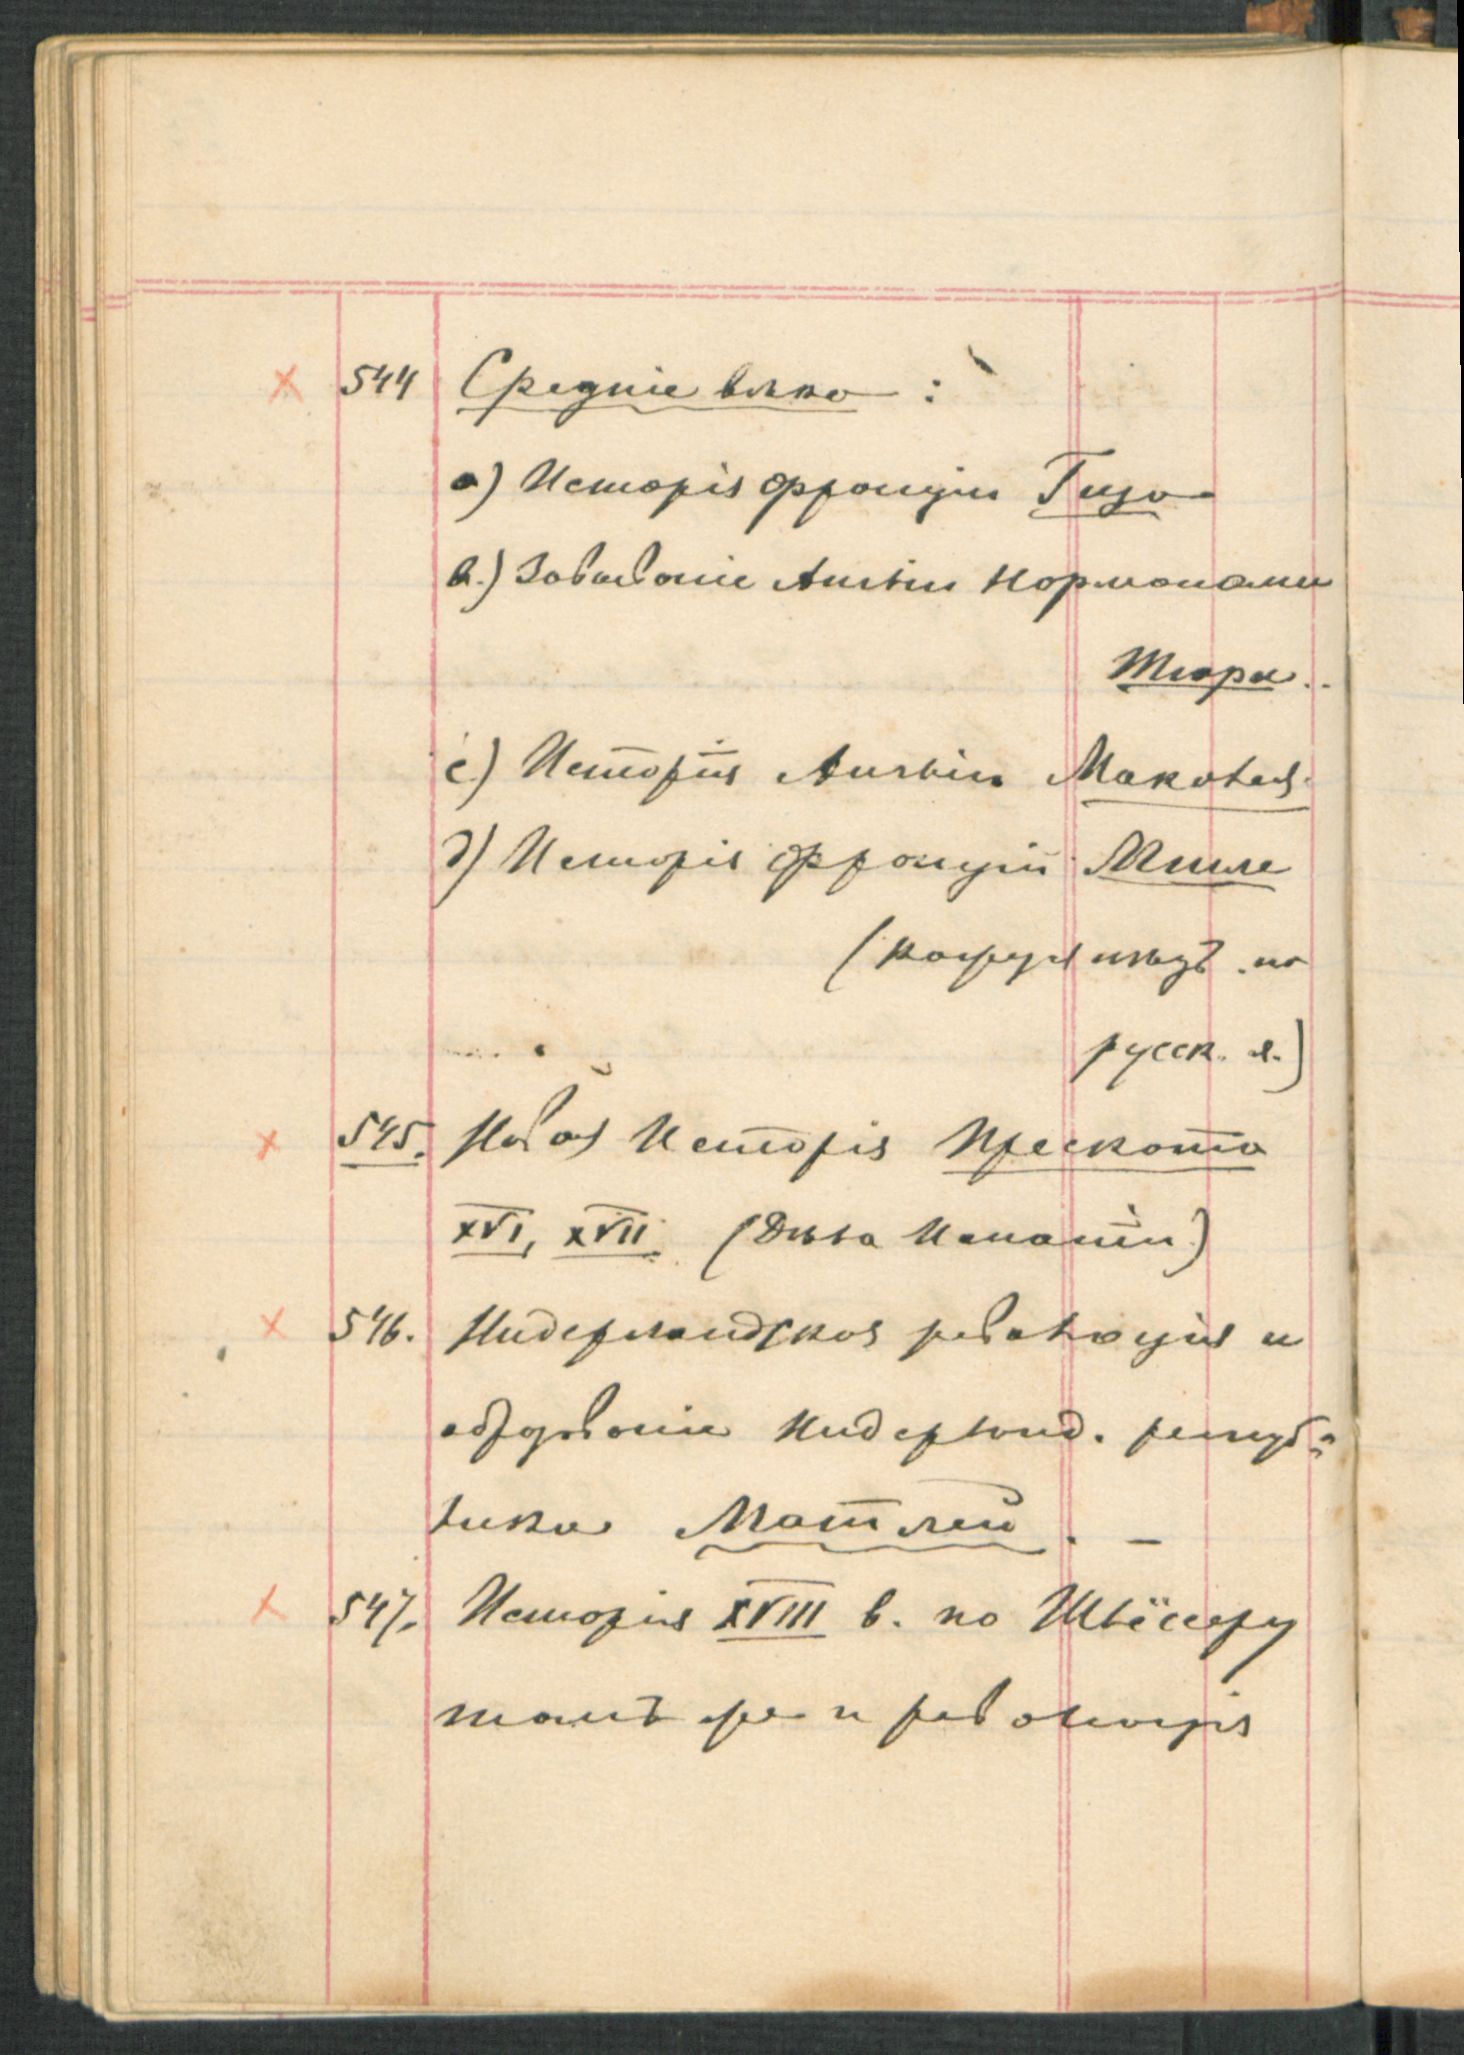 × 544 Средніе вѣка :
a) Исторія Франціи Гизо
в.) Завоеваніе Англіи Норманами
Тьери.
c) Исторія Англіи Маколея.
д) Исторія Франціи Мишле
на
русск. я.)
× 545. Новая Исторія Прескота
XVI, XVII (Дѣла Испаніи)
× 546. Нидерландская революція и
образованіе Нидерланд. респуб=
лики Матлей . –
× 547. Исторія XVIII в. по Шлёссеру
тамъ же и революція